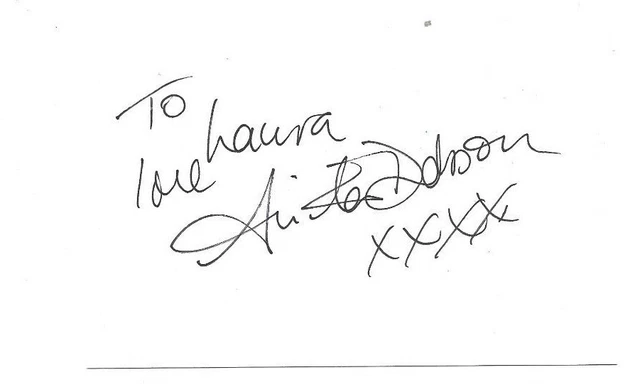 To
Laura
love
Anita Dobson
xxxx